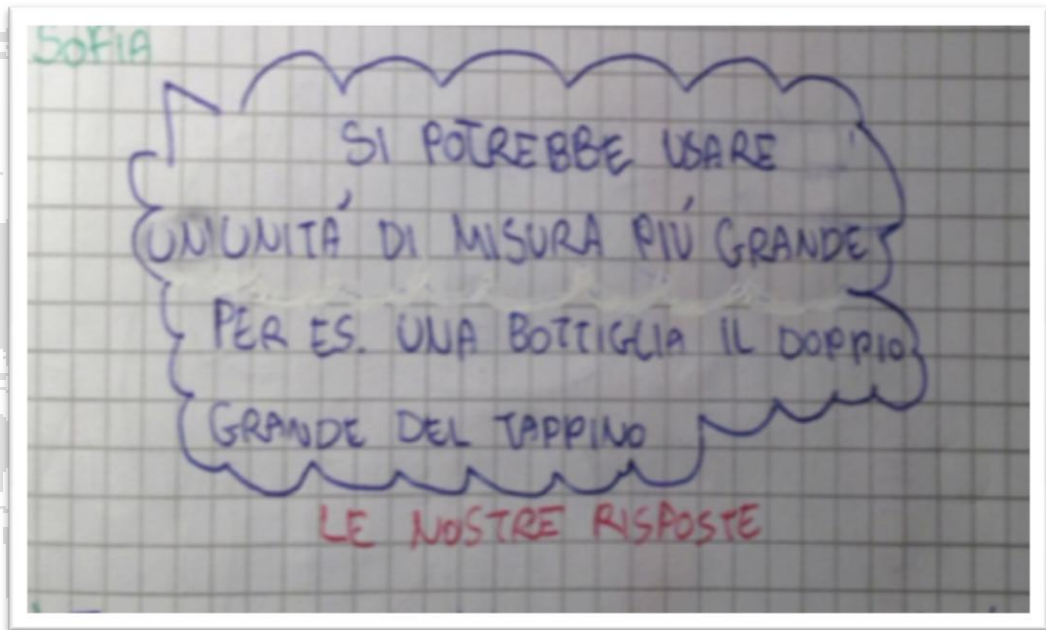 SOFIA
SI POTREBBE USARE
UN'UNITÁ DI MISURA PIÚ GRANDE
PER ES. UNA BOTTIGLIA IL DOPPIO
GRANDE DEL TAPPINO
LE NOSTRE RISPOSTE